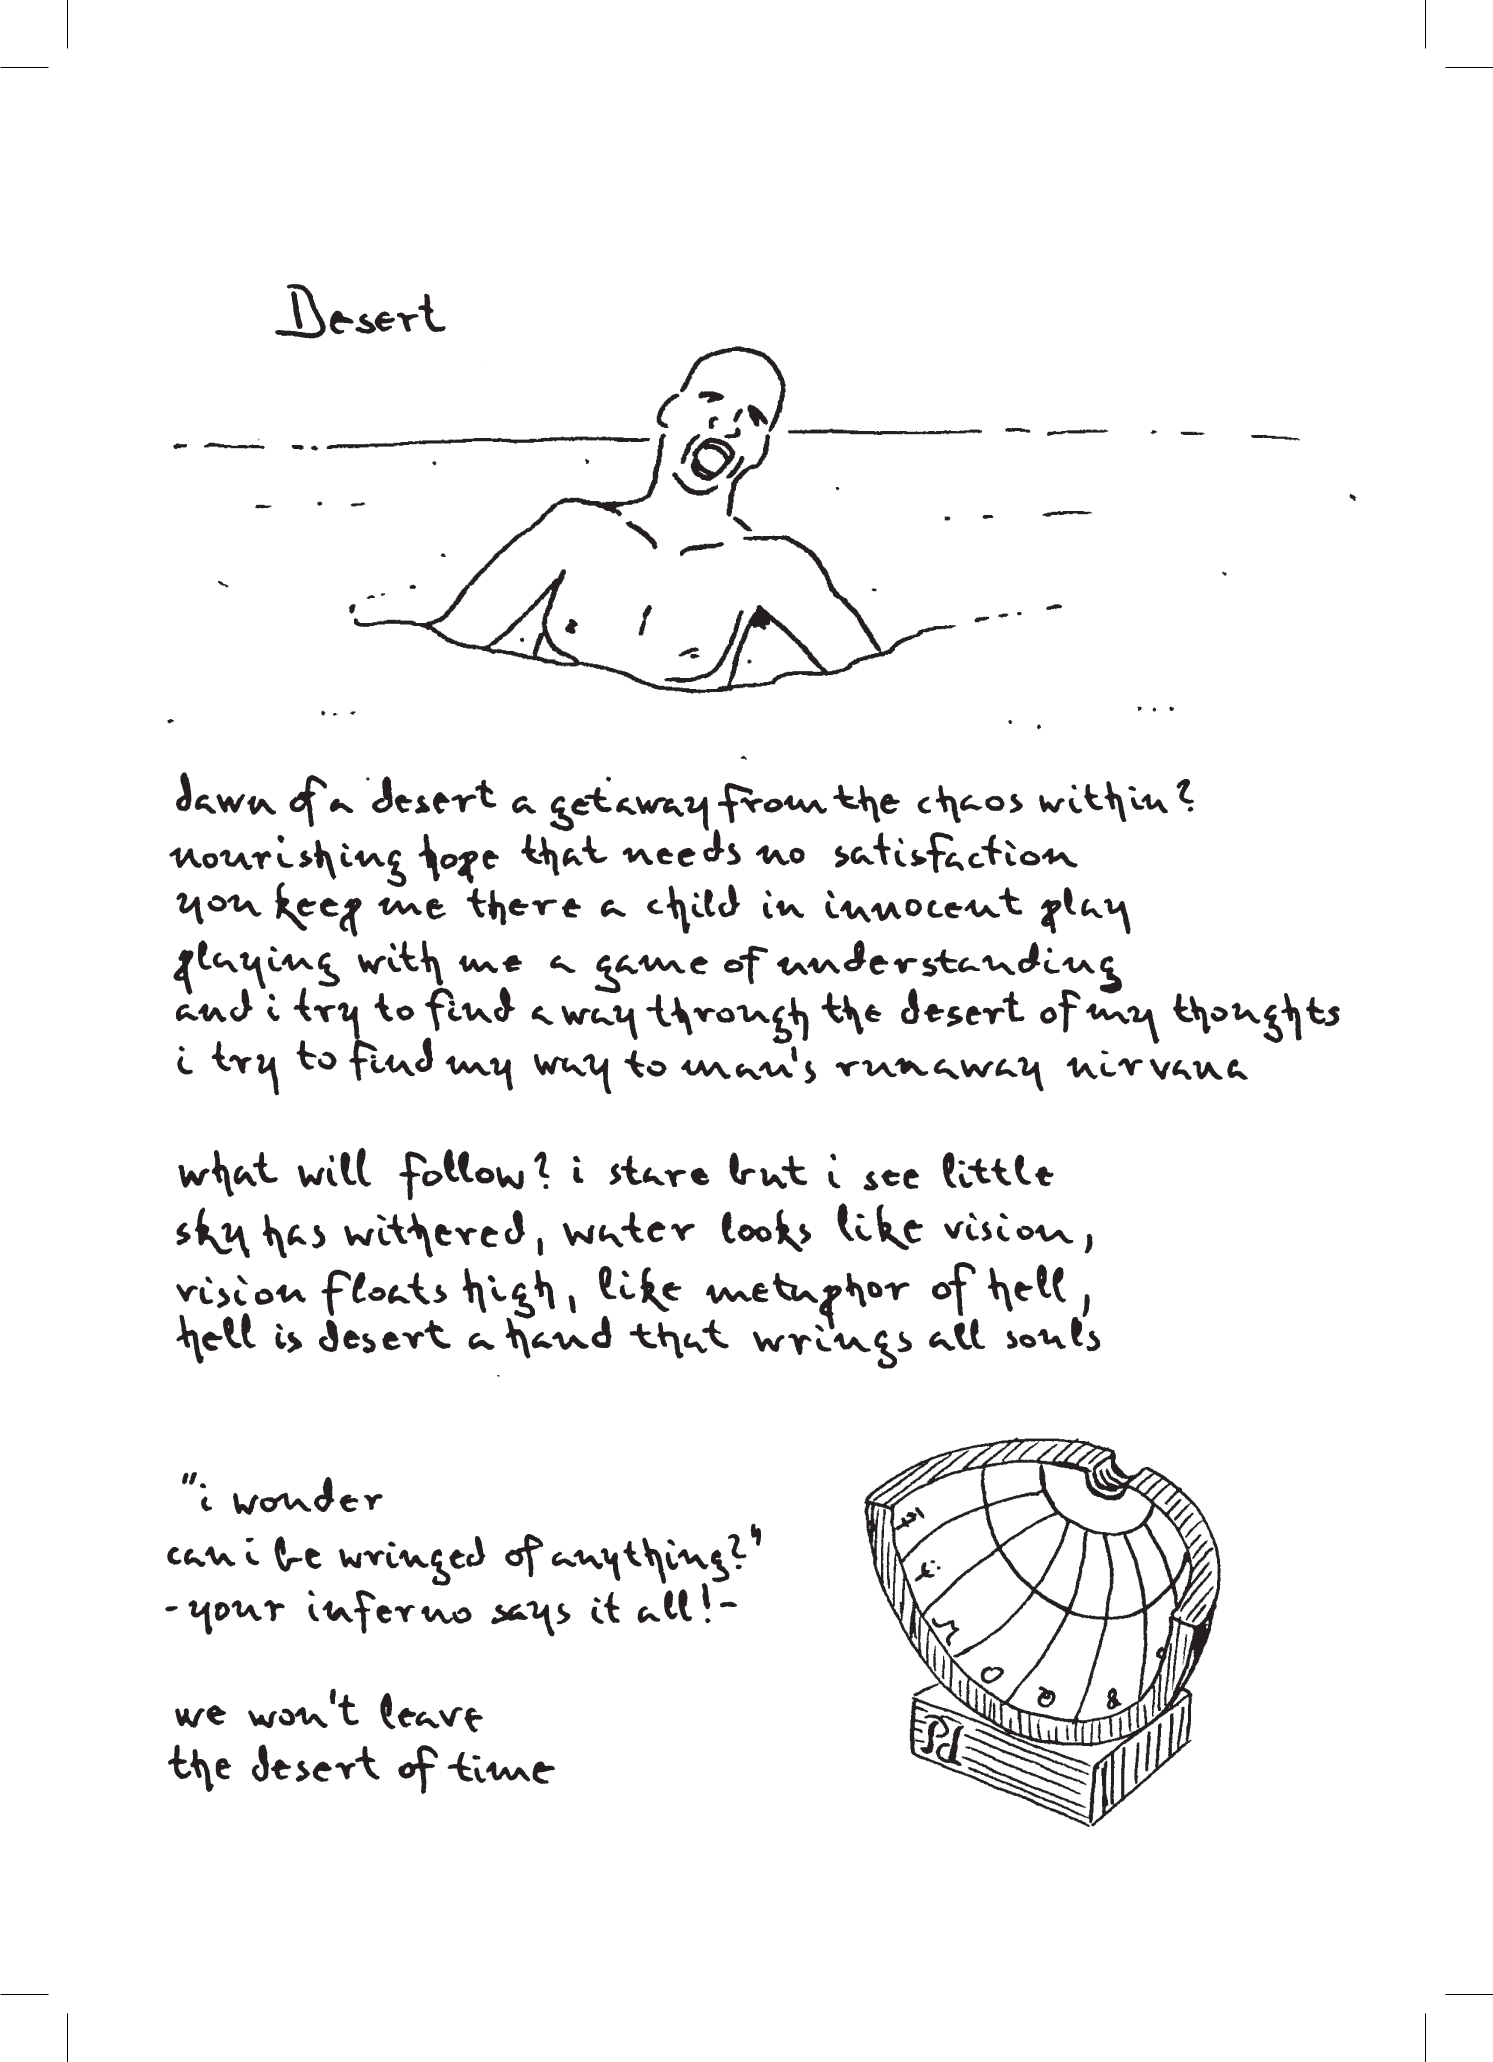 Desert
dawn of a desert a getaway from the chaos within?
nourishing hope that needs no satisfaction
you keep me there a child in innocent play
playing with me a game of understanding
and i try to find a way through the desert of my thoughts
i try to find my way to man's runaway nirvana
what will follow? i stare but i see little
sky has withered, water looks like vision,
vision floats high, like metaphor of hell,
hell is desert a hand that wrings all souls
"i wonder
can i be wringed of anything?"
- your inferno says it all! -
we won't leave
the desert of time